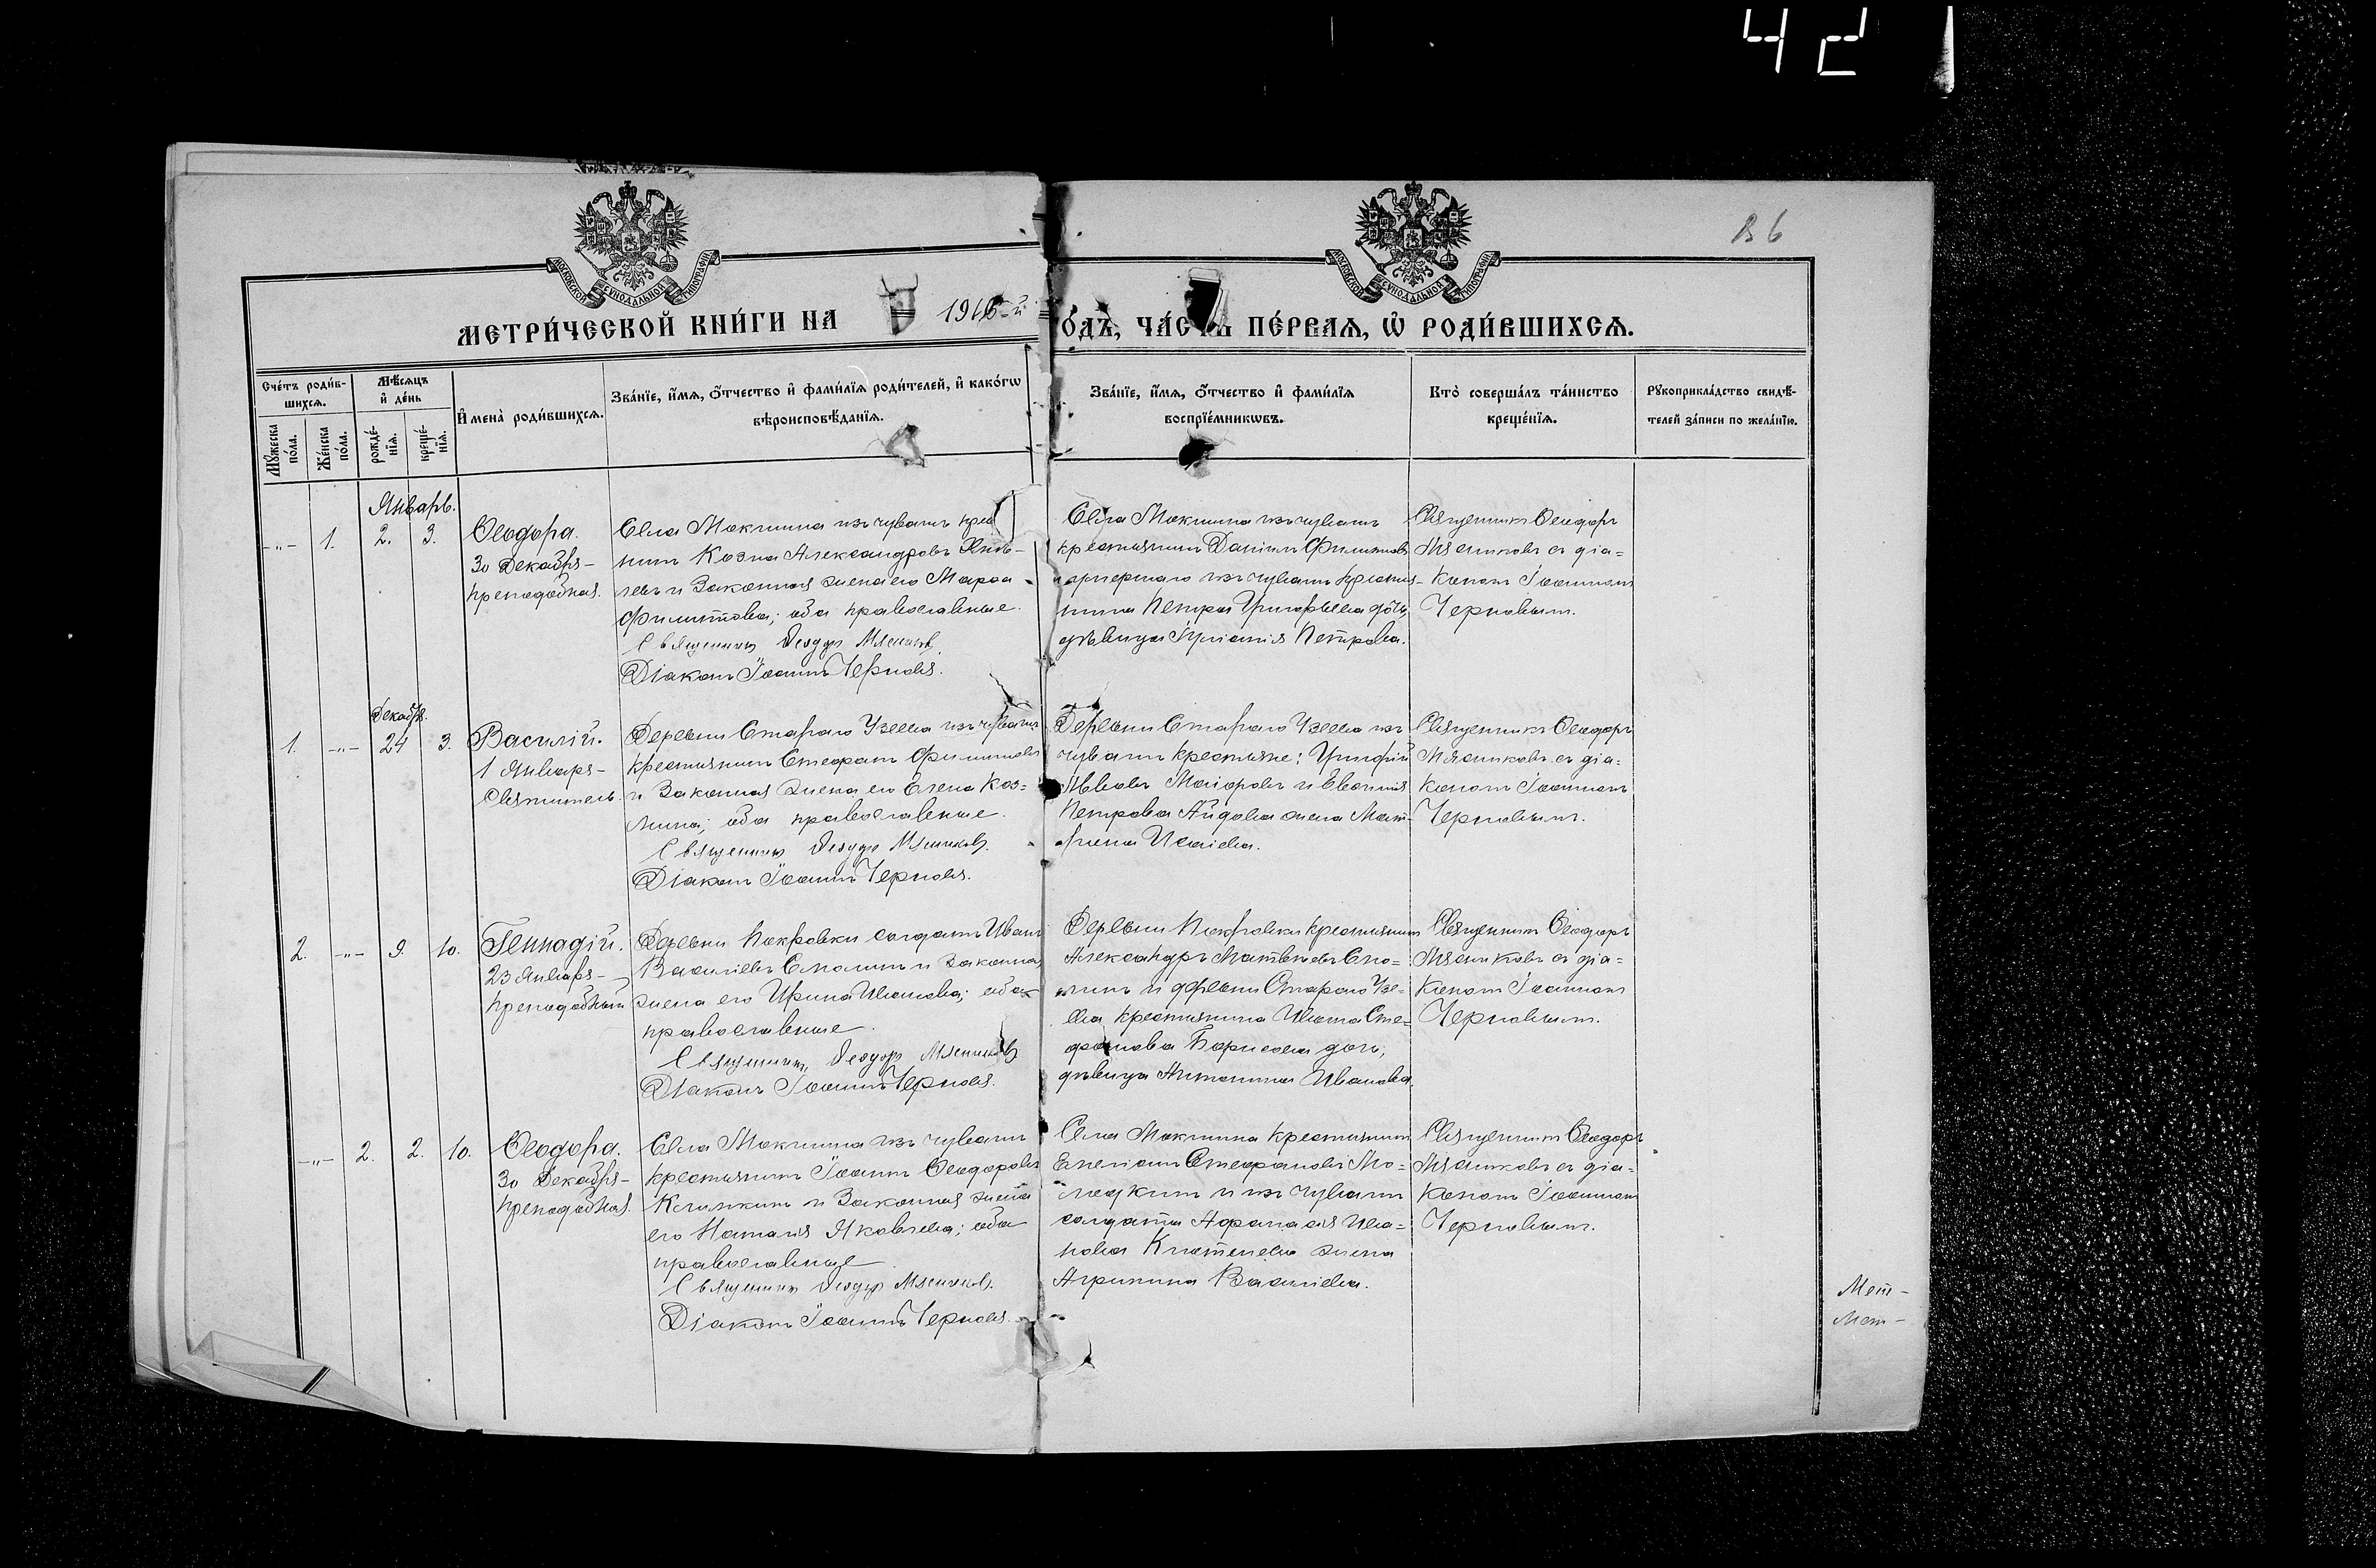 42
В 6
МОСКОВСКОЙ СѴНОДАЛЬНОЙ ТИПОГРАФІИ
МОСКОВСКОЙ СѴНОДАЛЬНОЙ ТИПОГРАФІИ
МЕТРИ́ЧЕСКОЙ КНИ́ГИ НА 1916-й
ОДЪ, ЧА́СТЬ ПЕ́РВАѦ, Ѡ҆ РОДИ́ВШИХСѦ.
Сче́тъ роди́в-
шихсѧ.
Мꙋ́жеска
по́ла.
Же́нска
по́ла.
Мѣ́сѧцъ
и҆ де́нь
рожде́-
нїѧ.
креще́-
нїѧ.
И҆мена̀ роди́вшихсѧ.
Зва́нїе, и҆́мѧ, ѻ҆́тчество и҆ фами́лїѧ роди́телей, и҆ како́гѡ
вѣроисповѣ́данїѧ.
Зва́нїе, и҆́мѧ, ѻ҆́тчество и҆ фами́лїѧ
воспрїе́мникѡвъ.
Кто̀ соверша́лъ та́инство
креще́нїѧ.
Рꙋкоприкла́дство свидѣ́-
телей за́писи по жела́нїю.
Январь.
-"- 1. 2. 3.
Ѳеодора.
30 Декабря-
преподобная.
Села Мокшина изъ чувашъ кре
нинъ Козма Александровъ Яков-
левъ и законная жена его Марѳа
Филиппова; оба православные.
Священникъ Ѳеодоръ Мясников.
Діаконъ Іоаннъ Черновъ.
Села Мокшина изъ чувашъ
крестьянинъ Даніилъ Филиповъ
и умершаго изъ чувашъ крестья-
нина Петра Григорьева дочь,
дѣвица Іуліанія Петрова.
Священникъ Ѳеодоръ
Мясниковъ съ діа-
кономъ Іоанномъ
Черновымъ.
Декабрь.
1. -"- 24 3.
Василій.
1 Января-
Святитель.
Деревни Стараго Узеева изъ чувашъ
крестьянинъ Стефанъ Филипповъ
и законная жена его Елена Коз-
мина; оба православные.
Священникъ Ѳеодоръ Мясников.
Діаконъ Іоаннъ Черновъ.
Деревни Стараго Узеева изъ
чувашъ крестьяне: Григорій
Петрова Айдова жена Мат-
рона Исаіева.
Священникъ Ѳеодоръ
Мясниковъ съ діа-
кономъ Іоанномъ
Черновымъ.
2. -"- 9. 10.
Геннадій.
23 Января-
преподобный
Деревни Покровки солдатъ Иванъ
Василіевъ Смолинъ и законная
жена его Ирина Иванова; оба
православные.
Священникъ Ѳеодоръ Мясников
Діаконъ Іоаннъ Черновъ.
Деревни Покровки крестьянинъ
Александръ Матвѣевъ Смо-
линъ и деревни Стараго Узе-
ева крестьянина Ивана Сте-
фанова Борисова дочь,
дѣвица Антонина Иванова.
Священникъ Ѳеодоръ
Мясниковъ съ діа-
кономъ Іоанномъ
Черновымъ.
-"- 2. 2. 10.
Ѳеодора.
30 Декабря-
преподобная.
Села Мокшина изъ чувашъ
крестьянинъ Іоаннъ Ѳеодоровъ
и законная жена
его Наталія Яковлева; оба
православные
Священникъ Ѳеодоръ Мясников.
Діаконъ Іоаннъ Черновъ.
Села Мокшина крестьянинъ
Емеліанъ Стефановъ Мо-
лодкинъ и изъ чувашъ
солдата Аѳанасія Ива-
нова жена
Агрипина Василіева.
Священникъ Ѳеодоръ
Мясниковъ съ діа-
кономъ Іоанномъ
Черновымъ.
Мет-
Мет-